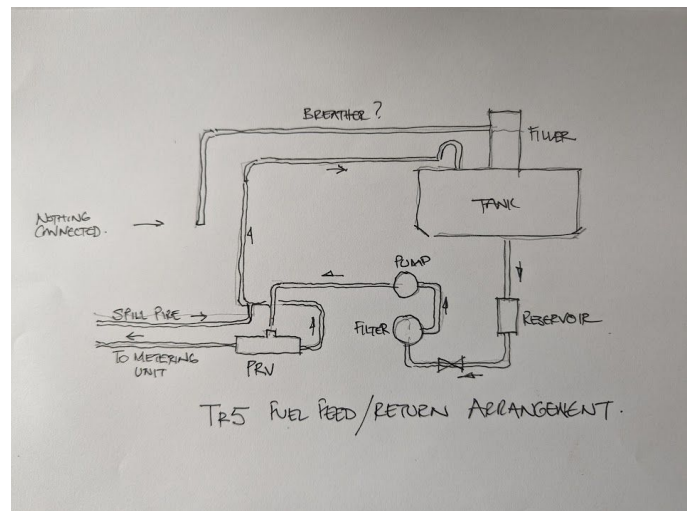 BREATHER?
FILLER
TANK
NOTHING
CONNECTED.
PUMP
SPILL PIPE
FILTER
RESERVOIR
TO METERING
UNIT
PRV
TR5 FUEL FEED/RETURN ARRANGEMENT.